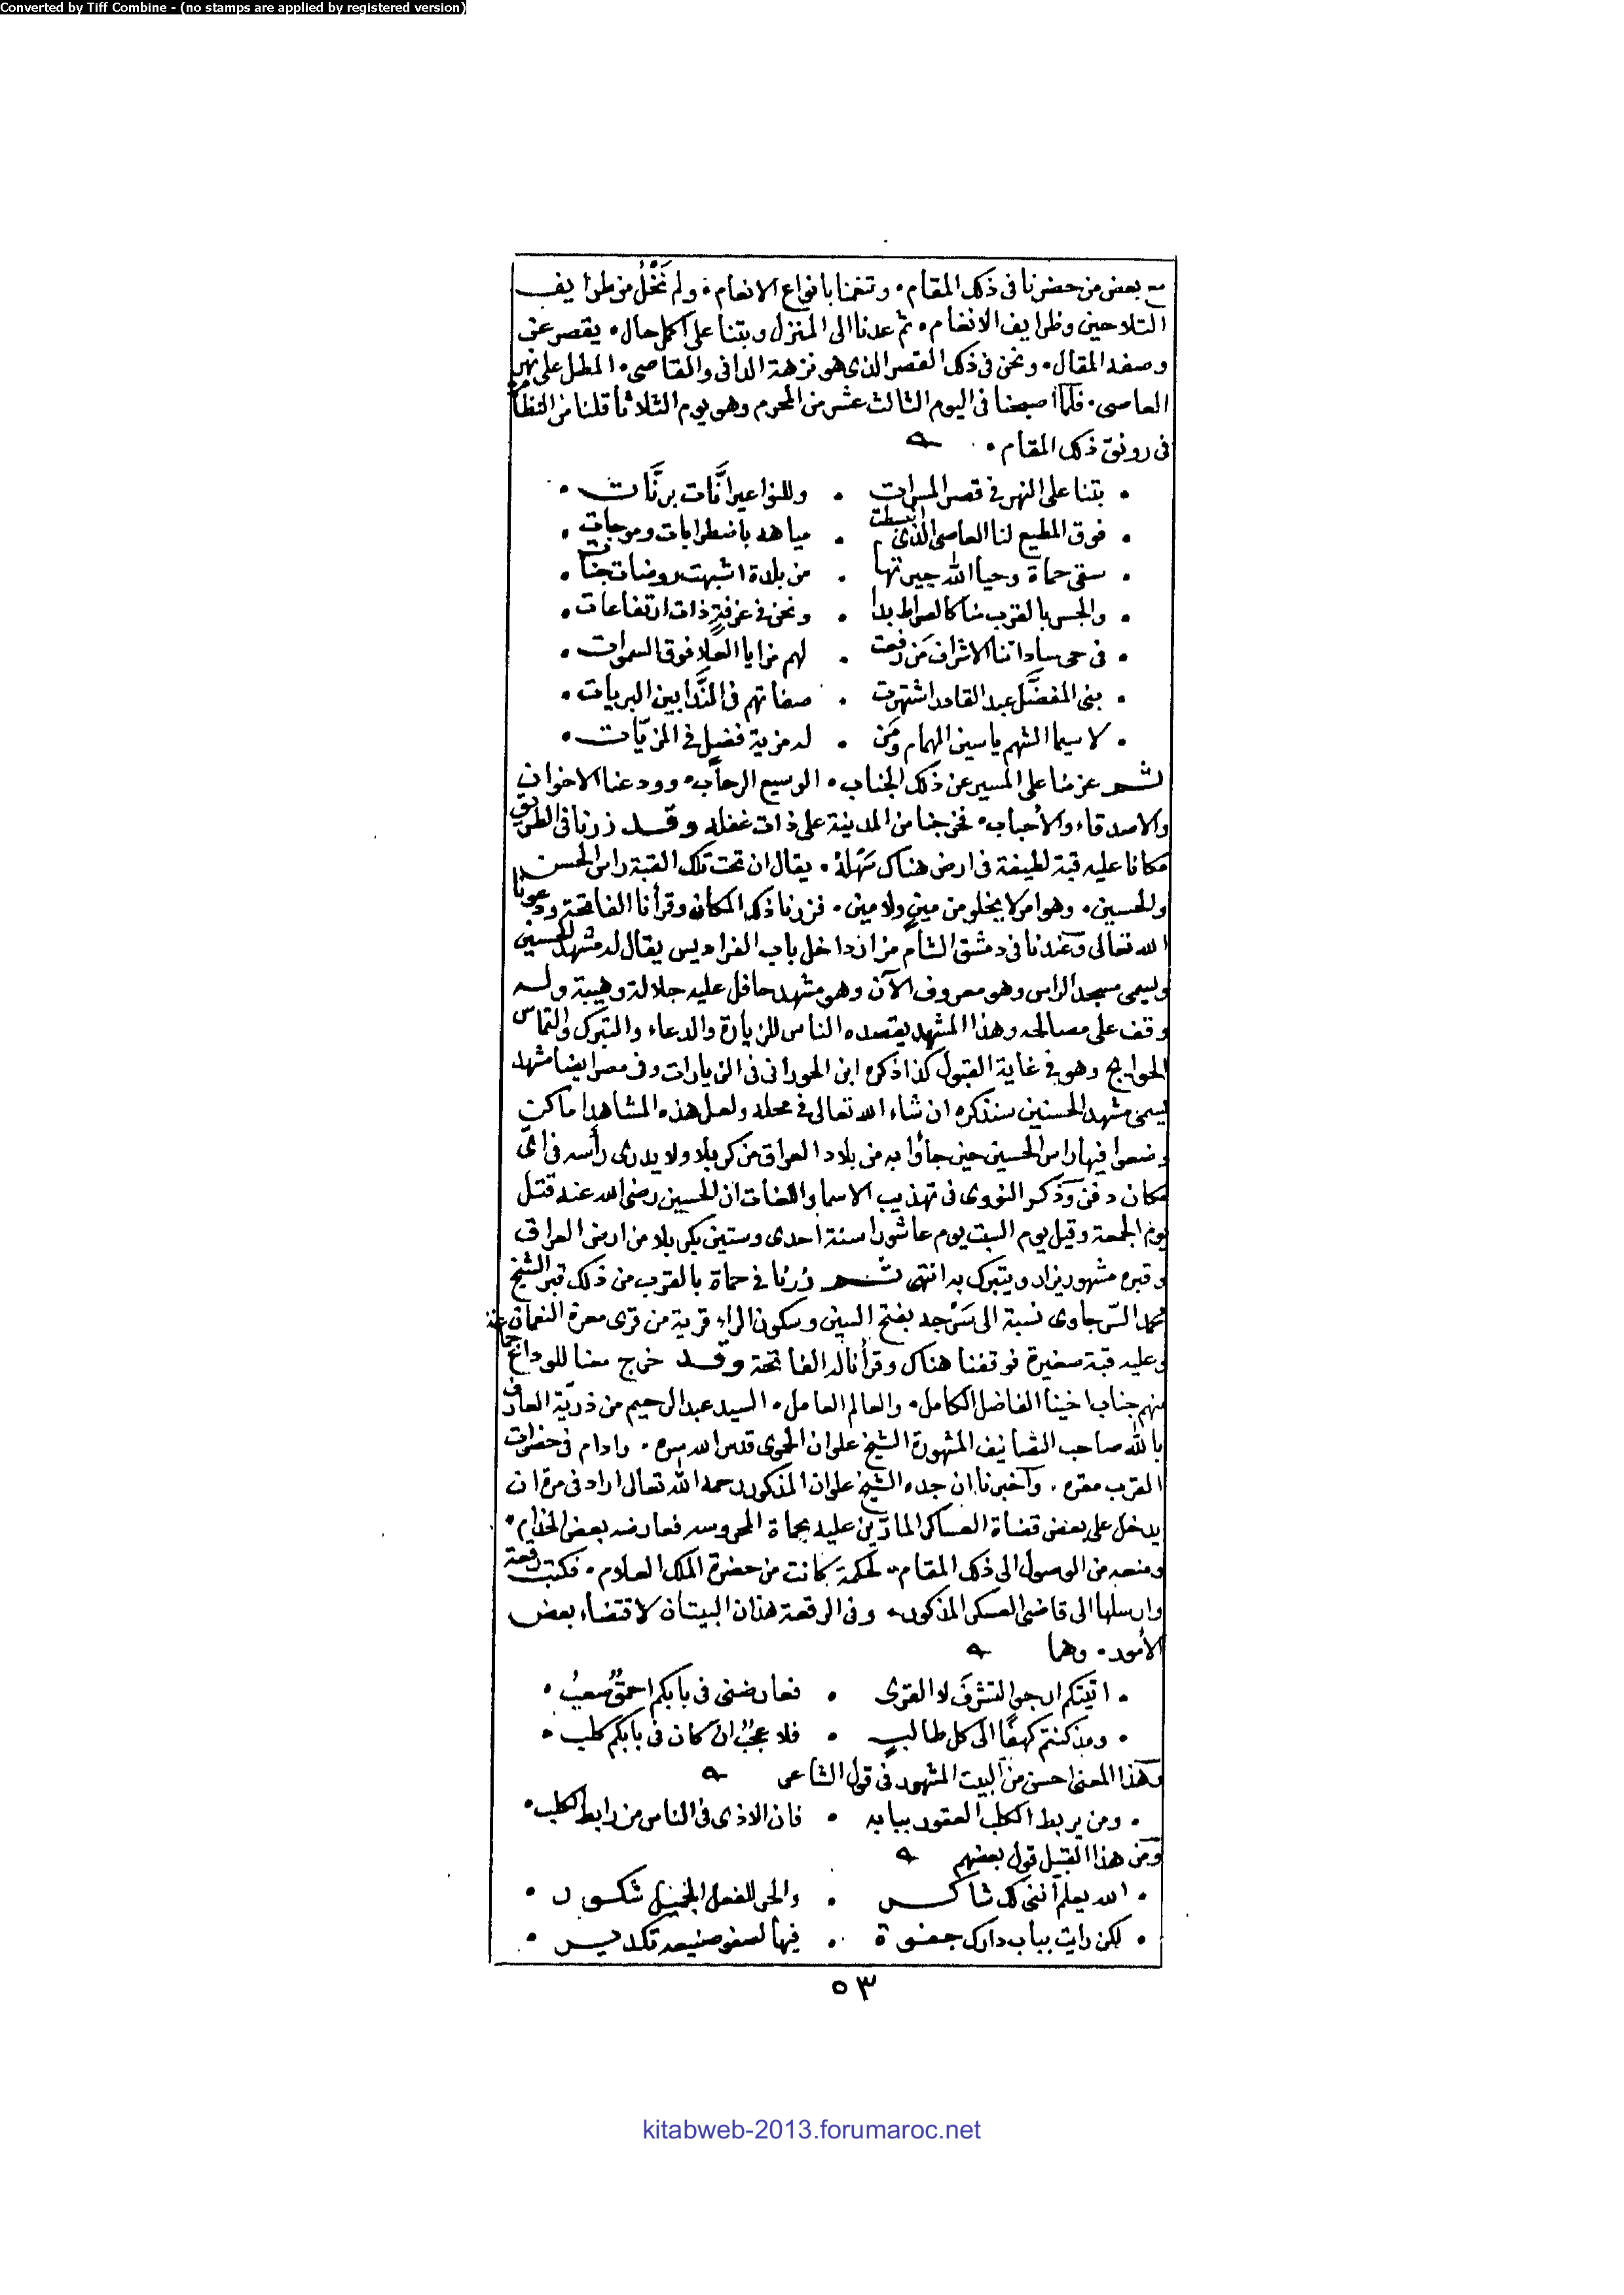 Converted by Tiff Combine - (no stamps are applied by registered version)
مع بعض من حضرنا فى ذلك المقام • وتنعمنا بانواع الانعام • ولم نَخْلُ من طرايف
التلاحين وظرايف الانغام • ثم عدنا الى المنزل وبتنا على اكمل حال • يقصر عن
وصفه المقال • ونحن فى ذلك القصر الذى هو نزهة الدانى والقاصى • المطل على نهر
العاصى • فلما أصبحنا فى اليوم الثالث عشر من المحرم وهو يوم الثلاثا قلنا من النظام
فى رونق ذلك المقام •
• بتنا على النهر فى قصر المسرات • وللنواعير انَّات برنَّات •
• فوق المطيع لنا العاصى الذى انبسطت • مياهه باضطرابات وموجات •
• سقى حماة وحيا الله جيرتها • من بلدة اشبهت روضات جنات •
• والجسر بالقرب منا كالصراط بدا • ونحن فى غرفةٍ ذات ارتفاعات •
• فى حى ساداتنا الاشراف مَن رفعت • لهم مزايا العلا فوق السموات •
• بنى المفضَّل عبد القادر اشتهرت • صفاتهم فى النَّدا بين البريات •
• لاسيما الشهم ياسين الهمام ومَن • له مزية فضلٍ فى المزيّات •
ثم عزمنا على المسير عن ذلك الجناب • الوسيع الرحاب • وودعنا الاخوان
والاصدقاء والأحباب • فخرجنا من المدينة على ذات غفله وقد زرنا فى الطريق
مكانا عليه قبة لطيفة فى ارض هناك سَهْلة • يقال ان تحت تلك القبة راس الحسن
والحسين • وهو امر لا يخلو من مينٍ ولا مين • فزرنا ذلك المكان وقرأنا الفاتحة ودعونا
الله تعالى وعندنا فى دمشق الشام مزار داخل باب الفراديس يقال له مشهد الحسين
ويسمى مسجد الراس وهو معروف الآن وهو مشهد حافل عليه جلالة وهيبة وله
وقف على مصالحه وهذا المشهد يقصده الناس للزيارة والدعاء والتبرك والتماس
الحوايج وهو فى غاية القبول كذا ذكره ابن الحورانى فى الزيارات وفى مصر ايضا مشهد
يسمى مشهد الحسنين سنذكره ان شاء الله تعالى فى محله ولعل هذه المشاهد اماكن
وضعوا فيها راس الحسين حين جاؤا به من بلاد العراق من كربلا ولا يدرى رأسه فى اىّ
مكان دفن وذكر النووى فى تهذيب الاسما واللغات ان الحسين رضى الله عنه قتل
يوم الجمعة وقيل يوم السبت يوم عاشورا سنة احدى وستين بكربلا من ارض العراق
وقبره مشهور يزار ويتبرك به انتهى ثم زرنا فى حماة بالقرب من ذلك قبر الشيخ
محمد السَّرجاوى نسبة الى سَرْجه بفتح السين وسكون الراء قرية من قرى معرة النعمان
وعليه قبة صغيرة فوقفنا هناك وقرأنا له الفاتحة وقد خرج معنا للوداع جماعة
منهم جناب اخينا الفاضل الكامل • والعالم العامل • السيد عبد الرحيم من ذريّة العارف
بالله صاحب التصانيف المشهورة الشيخ علوان الحموى قدس الله سره • وادام فى حضرات
القرب مقره • وأخبرنا ان جده الشيخ علوان المذكور رحمه الله تعالى اراد فى مرة ان
يدخل على بعض قضاة العساكر المارّين عليه بحماة المحروسه فعارضه بعض الخدام •
ومنعه من الوصول الى ذلك المقام • لحكمة كانت من حضرة الملك العلام • فكتب رقعة
وارسلها الى قاضى العسكر المذكور • وفى الرقعة هذان البيتان لاقتضاء بعض
الأمور • وهما
• اتيتكم ارجو التشرفَ لا القرى • فعارضنى فى بابكم احمقٌ صعبُ •
• ومذ كنتم كهفًا الى كل طالبٍ • فلا عجبٌ ان كان فى بابكم كلب •
وهذا المعنى احسن من البيت المشهور فى قول الشاعر
• ومن يربط الكلب العقور ببابه • فان الاذى فى الناس من رابط الكلب •
ومن هذا القبيل قول بعضهم
• الله يعلم أننى لك شاكر • والحر للفعل الجميل شكور •
• لكن رايت بباب دارك جفوة • فيها لصفو صنيعه تكدير •
٥٣
kitabweb-2013.forumaroc.net